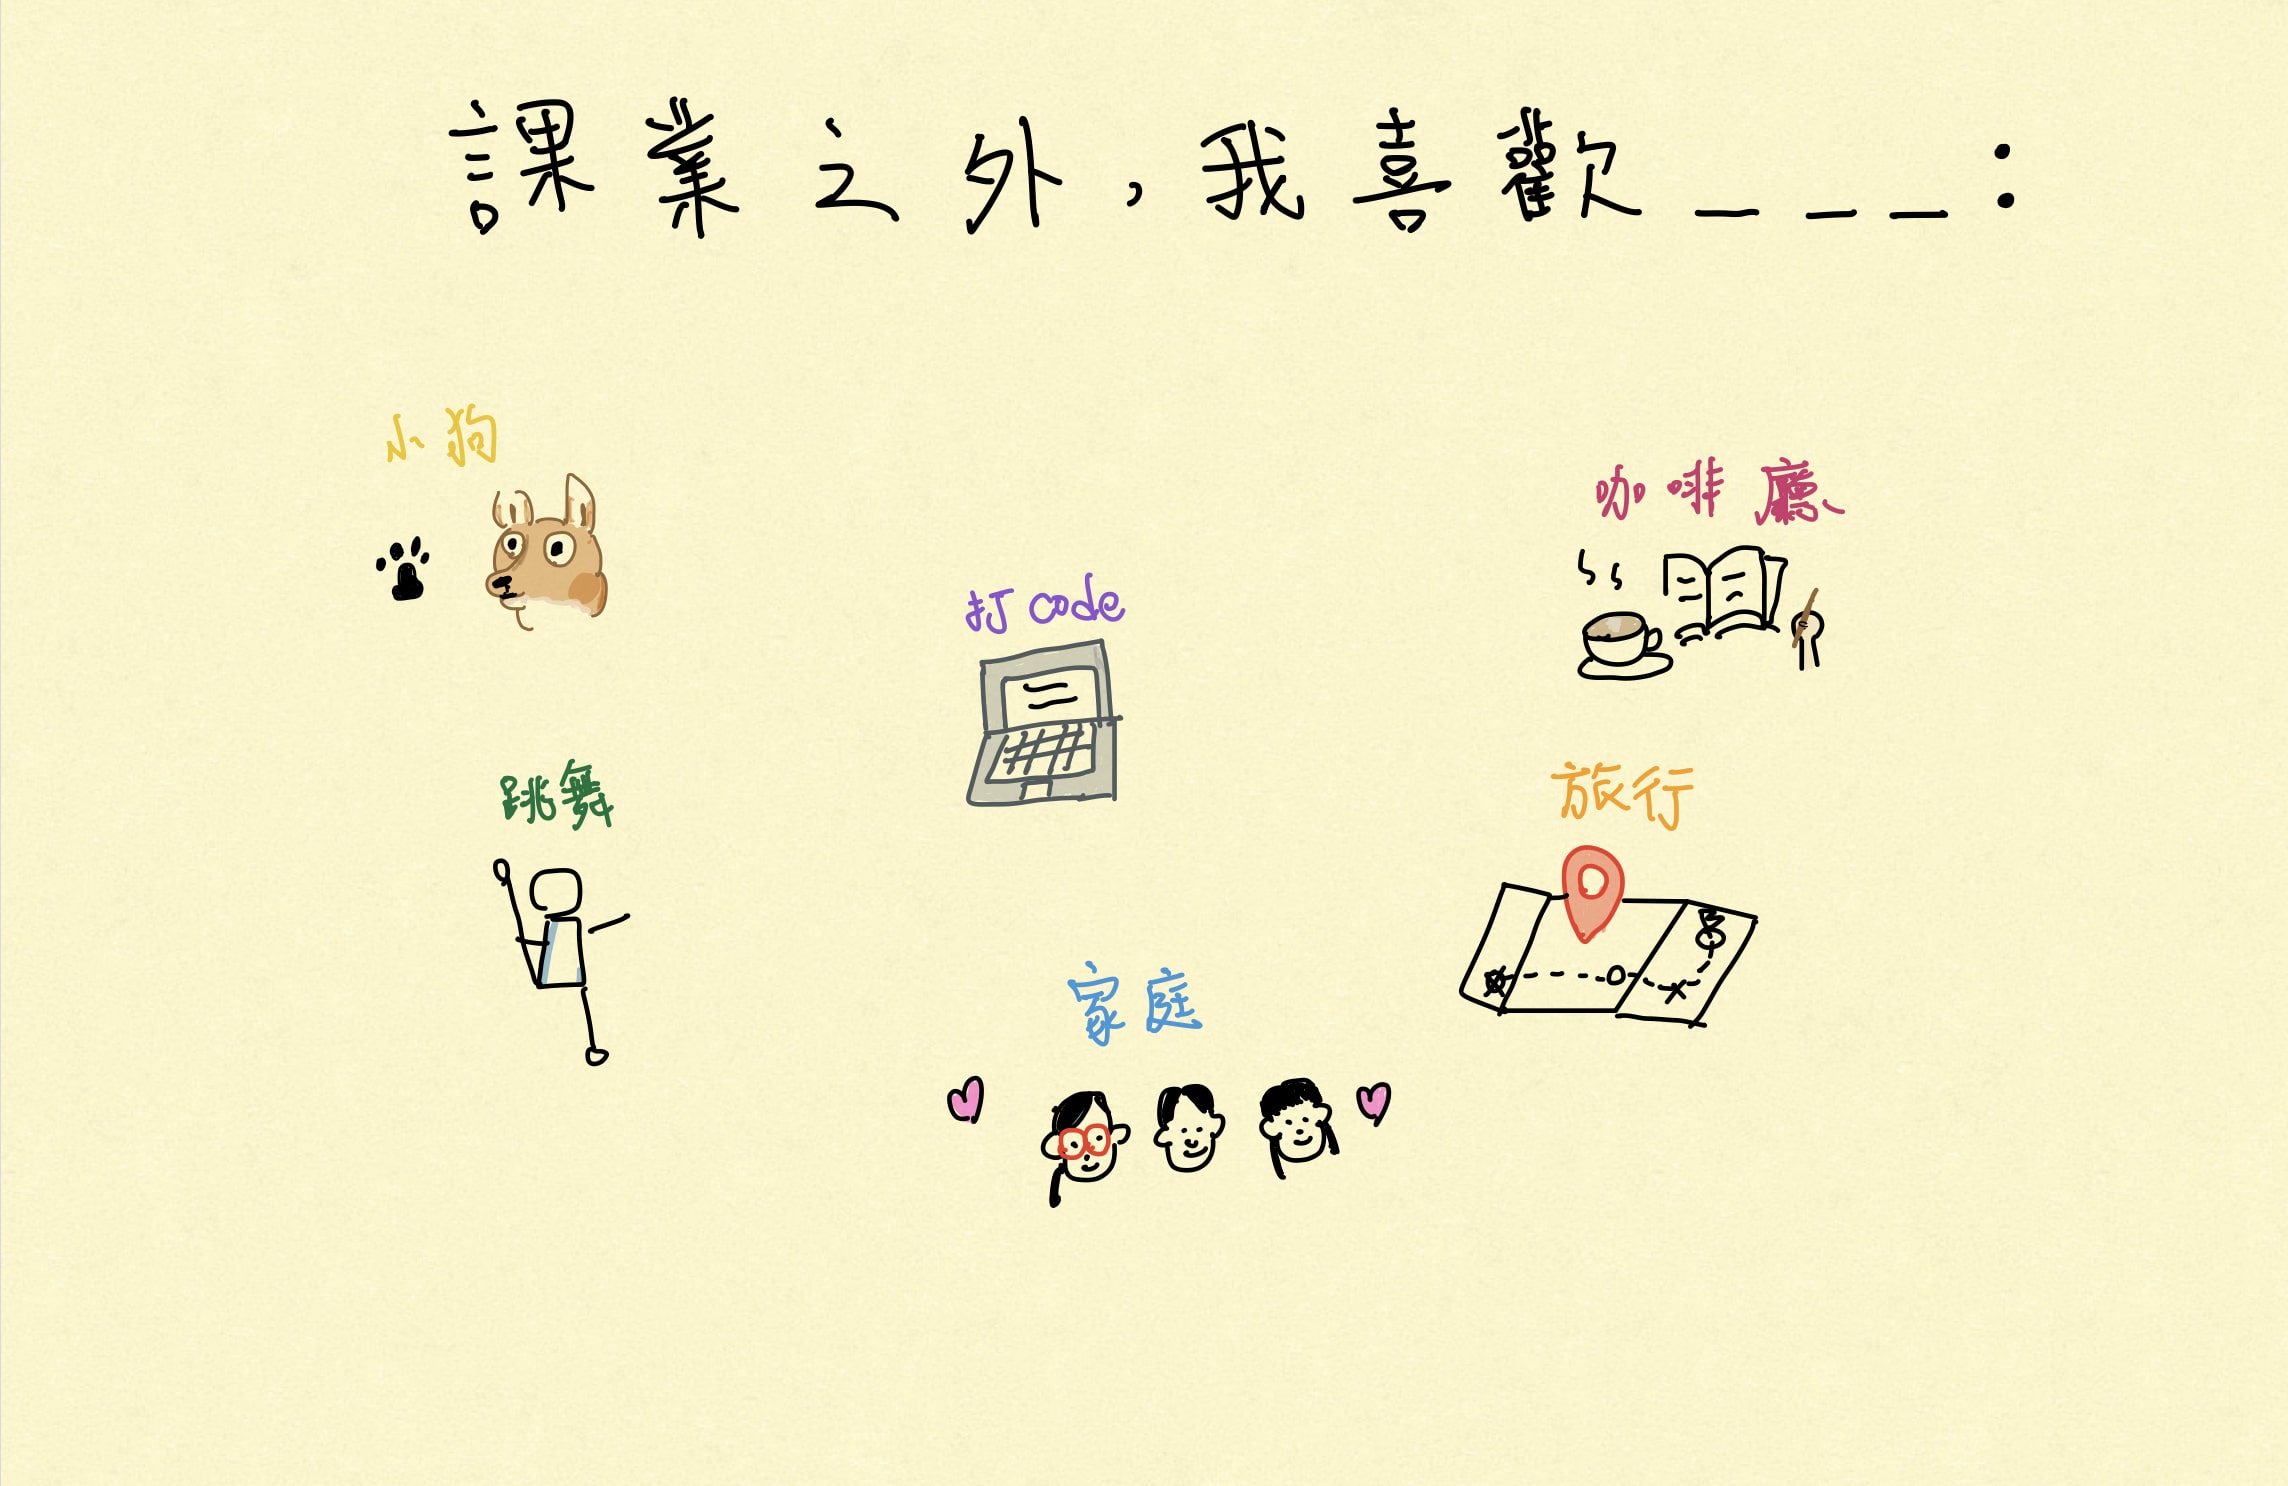 課業之外，我喜歡＿＿＿：
小狗
咖啡廳
打code
跳舞
旅行
家庭